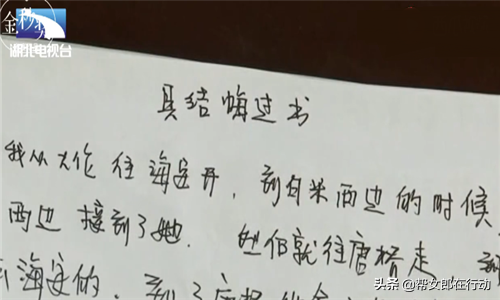 湖北电视台
具结悔过书
我从大伦往海安开,到白米西边的时候
西边接到了她. 她们就往唐桥走
海安的, 到了唐桥
头条 @帮女郎在行动